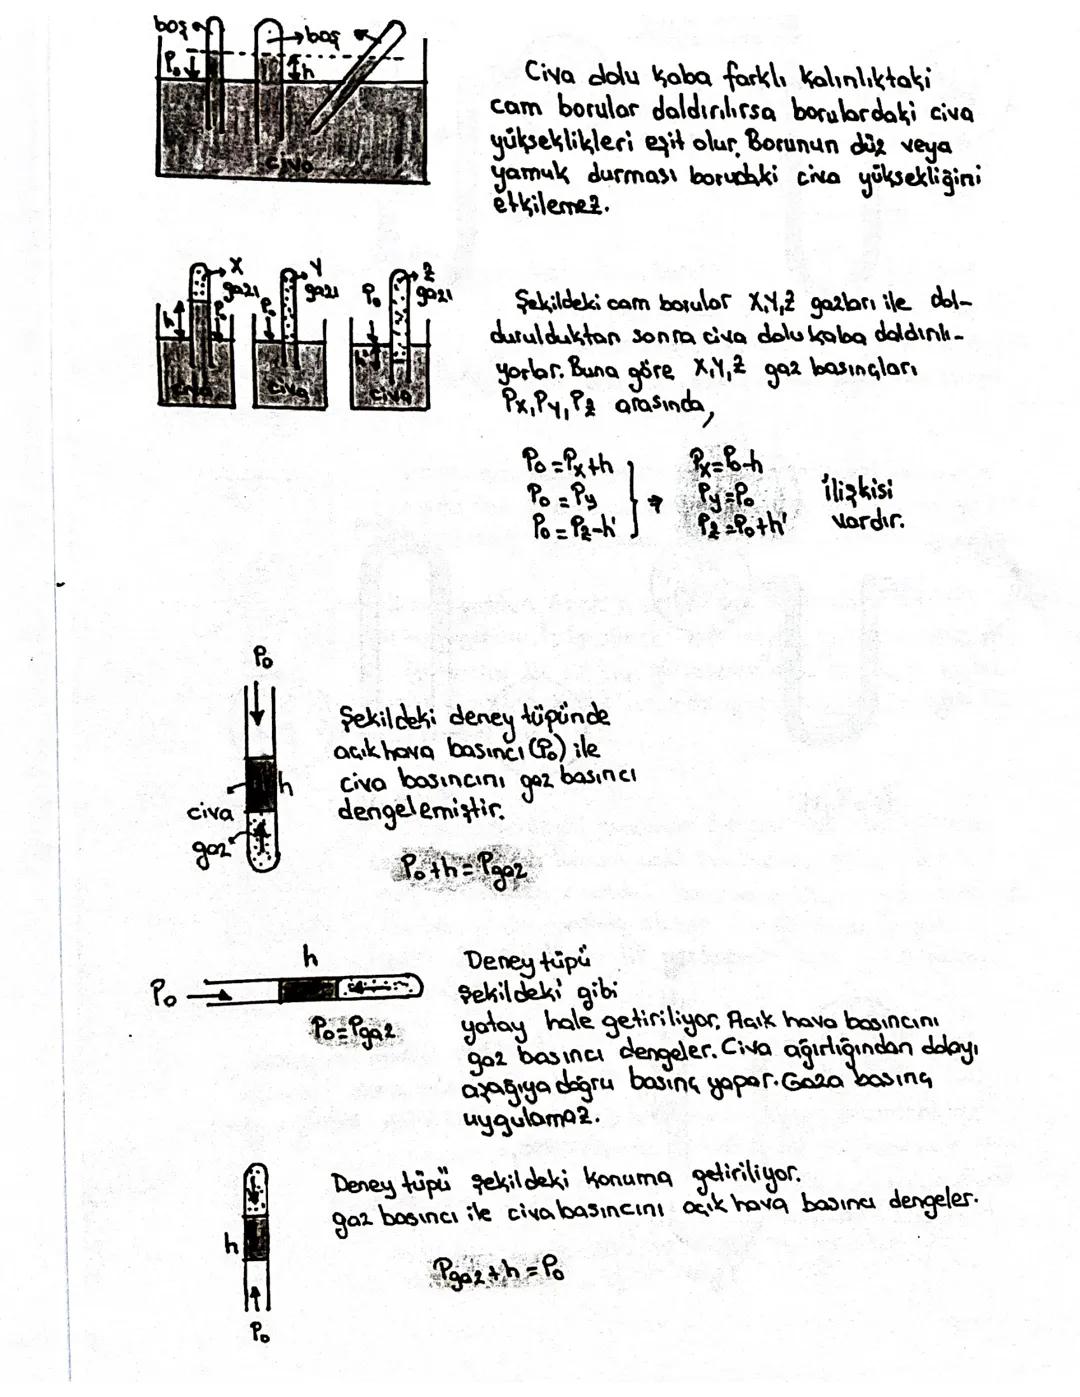 boş
boş
P₀
h
civa
Civa dolu kaba farklı kalınlıktaki
cam borular daldırılırsa borulardaki civa
yükseklikleri eşit olur. Borunun düz veya
yamuk durması borudaki civa yüksekliğini
etkilemez.
X gazı
Y gazı
Z gazı
h
P₀
P₀
P₀
h'
civa
civa
civa
Şekildeki cam borular X,Y,Z gazları ile dol-
durulduktan sonra civa dolu kaba daldırılı-
yorlar. Buna göre X,Y,Z gaz basınçları
Px, Py, Pz arasında,
P₀ = Px+h
Px=P₀-h
P₀ = Py
Py=P₀
P₀ = Pz-h'
Pz=P₀+h'
ilişkisi
vardır.
P₀
h
civa
gaz
Şekildeki deney tüpünde
açık hava basıncı (P₀) ile
civa basıncını gaz basıncı
dengelemiştir.
P₀+h=Pgaz
h
P₀
P₀=Pgaz
Deney tüpü
şekildeki gibi
yatay hale getiriliyor. Açık hava basıncını
gaz basıncı dengeler. Civa ağırlığından dolayı
aşağıya doğru basınç yapar. Gaza basınç
uygulamaz.
h
P₀
Deney tüpü şekildeki konuma getiriliyor.
gaz basıncı ile civa basıncını açık hava basıncı dengeler.
Pgaz+h=P₀